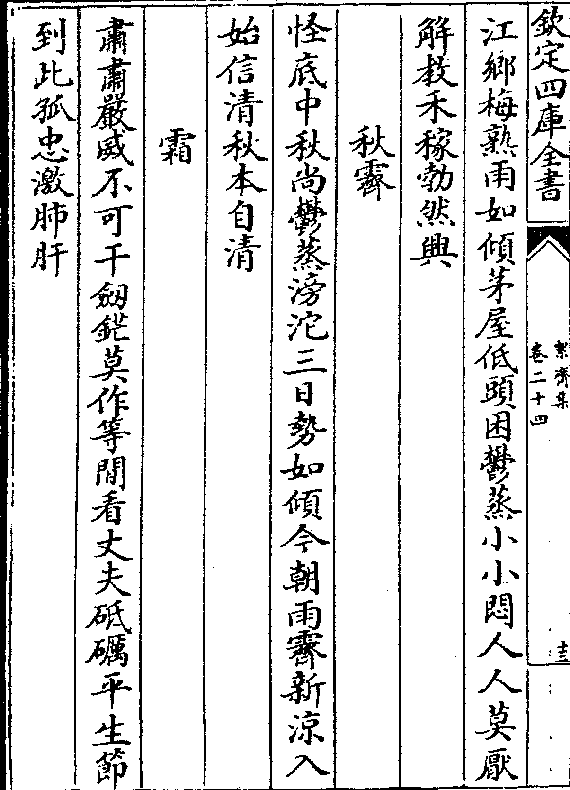 欽定四庫全書
絜齋集
卷二十四
十三
江鄉梅熟雨如傾茅屋低頭困鬱蒸小小悶人人莫厭
解教禾稼勃然興
秋霽
怪底中秋尚鬱蒸滂沱三日勢如傾今朝雨霽新涼入
始信清秋本自清
霜
肅肅嚴威不可干劔鋩莫作等閒看丈夫砥礪平生節
到此孤忠激肺肝